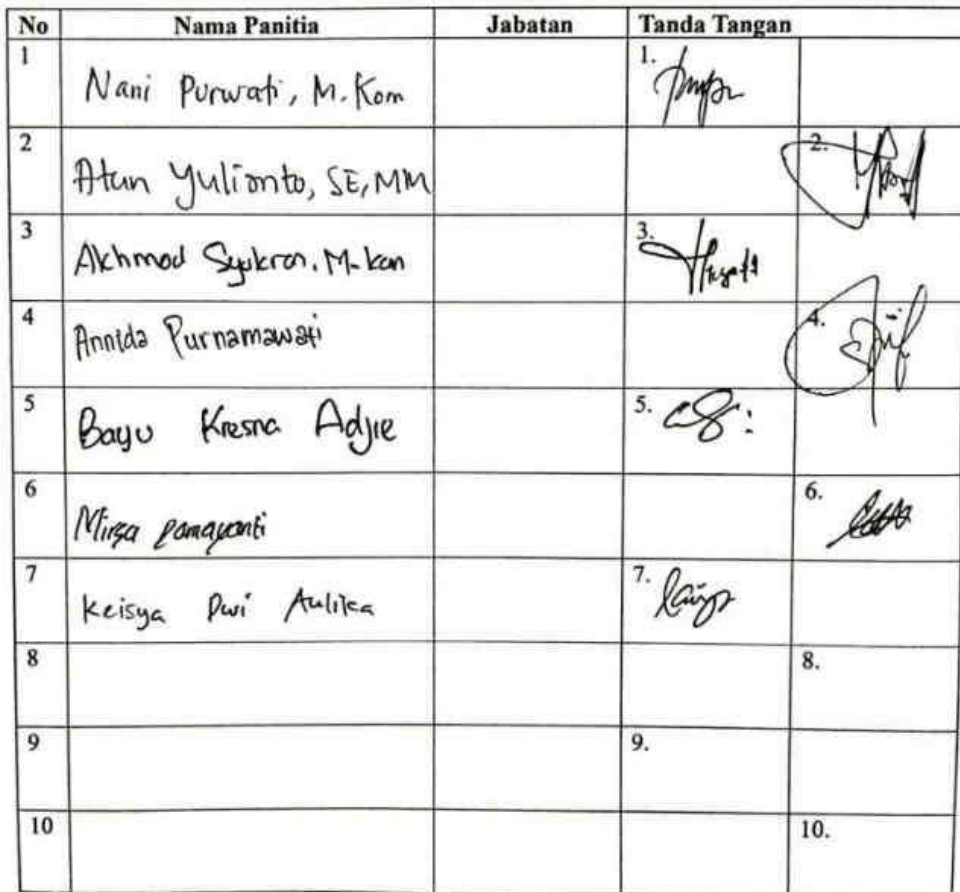 No Nama Panitia Jabatan Tanda Tangan
1 Nani Purwati, M.Kom 1.
2 Atun Yulianto, SE, MM 2.
3 Akhmad Syukron, M.Kom 3.
4 Annida Purnamawati 4.
5 Bayu Kresna Adjie 5.
6 Mirza 6.
7 Keisya Dwi Aulika 7.
8 8.
9 9.
10 10.